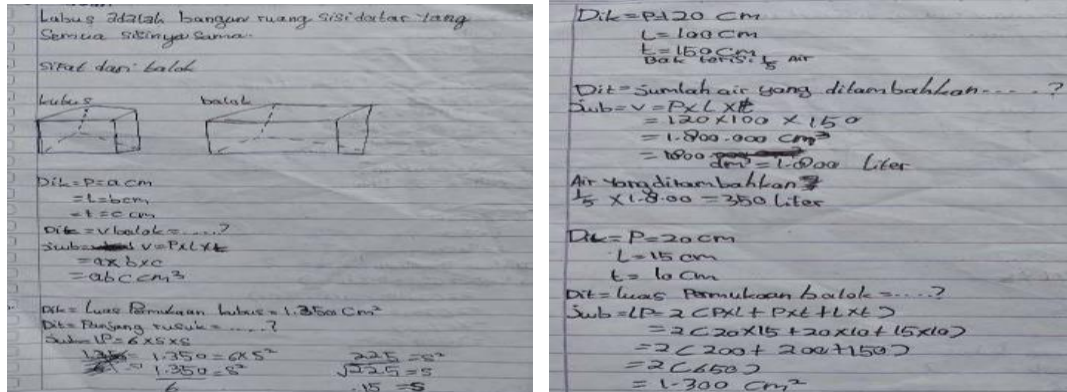 Kubus adalah bangun ruang sisi datar yang
Semua sisinya sama.
Sifat dari balok
kubus balok
Dik = P = a cm
= l = b cm
= t = c cm
Dit = V balok = ....?
Jwb = V = P x L x t
= a x b x c
= abc cm³
Dik = Luas Permukaan kubus = 1.350 cm²
Dit = Panjang rusuk = .....?
Jwb = LP = 6 x s x s
1.350 = 6 x s²
1.350 = s²
6
225 = s²
√225 = s
15 = s
Dik = P = 120 cm
L = 100 cm
t = 150 cm
Bak terisi 1/5 Air
Dit = Jumlah air yang ditambahkan ....?
Jwb = V = P x L x t
= 120 x 100 x 150
= 1.800.000 cm³
= 1800 dm³ = 1.800 Liter
Air yang ditambahkan
1/5 x 1.8.00 = 350 Liter
Dik = P = 20 cm
L = 15 cm
t = 10 cm
Dit = luas Permukaan balok = ....?
Jwb = LP = 2 ( P x L + P x t + L x t )
= 2 ( 20 x 15 + 20 x 10 + 15 x 10 )
= 2 ( 200 + 200 + 150 )
= 2 ( 650 )
= 1.300 cm²